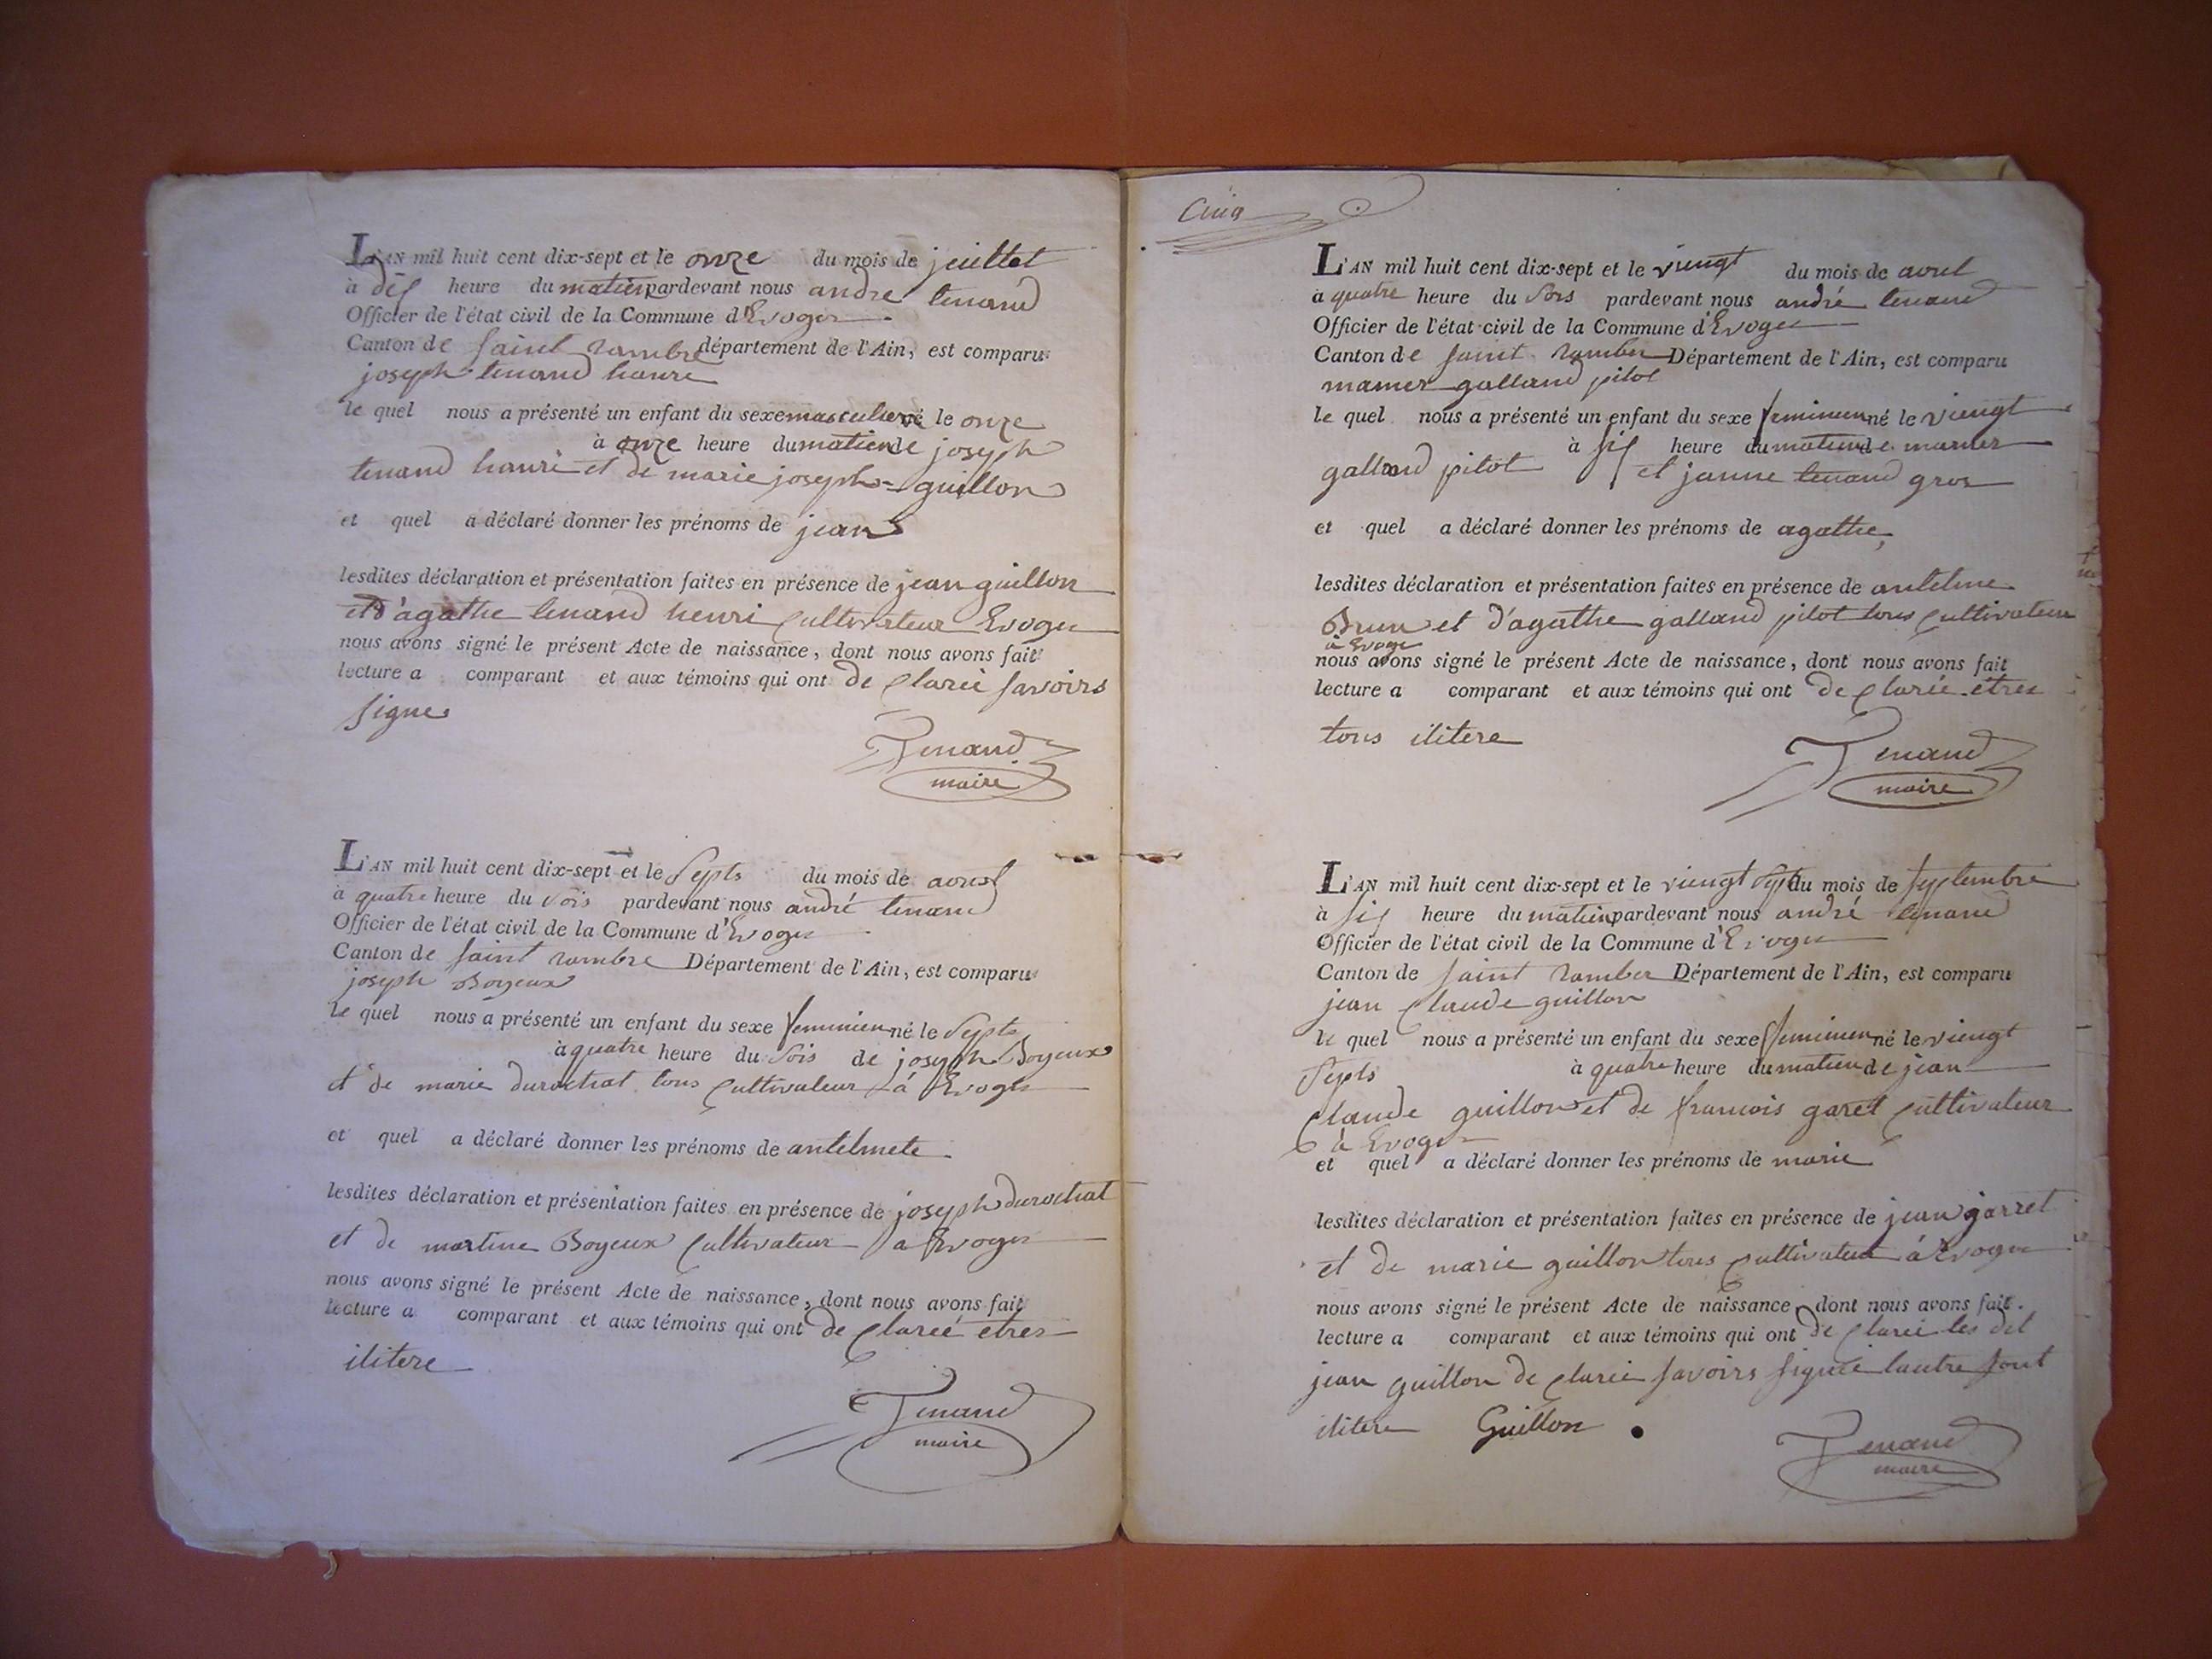 L'AN mil huit cent dix-sept et le onze du mois de juillet
à dix heure du matien pardevant nous andre tenand
Officier de l'état civil de la Commune d'Evoges
Canton de saint rambre département de l'Ain, est comparu
joseph tenand hanri
le quel nous a présenté un enfant du sexe masculien né le onze
à onze heure du matien de joseph
tenand hanri et de marie joseph guillon
et quel a déclaré donner les prénoms de jean
lesdites déclaration et présentation faites en présence de jean guillon
et d'agathe tenand henri cultivateur Evoges
nous avons signé le présent Acte de naissance, dont nous avons fait
lecture a comparant et aux témoins qui ont de clareé savoirs
signe
Tenand
maire
L'AN mil huit cent dix-sept et le septs du mois de avril
à quatre heure du sois pardevant nous andré tenand
Officier de l'état civil de la Commune d'Evoges
Canton de saint rambre Département de l'Ain, est comparu
joseph Boyeux
le quel nous a présenté un enfant du sexe feminien né le septs
à quatre heure du sois de joseph Boyeux
et de marie durochat tous cultivateur à Evoges
et quel a déclaré donner les prénoms de antelmete
lesdites déclaration et présentation faites en présence de joseph durochat
et de martine Boyeux cultivateur a Evoges
nous avons signé le présent Acte de naissance, dont nous avons fait
lecture a comparant et aux témoins qui ont de clareé etres
ilitere
Tenand
maire
Cinq
L'AN mil huit cent dix-sept et le viengt du mois de avril
à quatre heure du sois pardevant nous andré tenand
Officier de l'état civil de la Commune d'Evoges
Canton de saint ramber Département de l'Ain, est comparu
mamer galland pilot
le quel nous a présenté un enfant du sexe feminien né le viengt
à six heure du matien de mamer
galland pitot et janne tenand gros
et quel a déclaré donner les prénoms de agathe,
lesdites déclaration et présentation faites en présence de antelme
Brun et d'agathe galland pitot tous cultivateur
à Evoge
nous avons signé le présent Acte de naissance, dont nous avons fait
lecture a comparant et aux témoins qui ont de clarée êtres
tous ilitere
Tenand
maire
L'AN mil huit cent dix-sept et le viengt sept du mois de septembre
à six heure du matien pardevant nous andré tenand
Officier de l'état civil de la Commune d'Evoges
Canton de saint ramber Département de l'Ain, est comparu
jean claude guillon
le quel nous a présenté un enfant du sexe feminien né le viengt
septs à quatre heure du matien de jean
claude guillon et de francois garet cultivateur
à Evoges
et quel a déclaré donner les prénoms de marie
lesdites déclaration et présentation faites en présence de jean garret
et de marie guillon tous cultivateur à Evoges
nous avons signé le présent Acte de naissance, dont nous avons fait
lecture a comparant et aux témoins qui ont de clareé les dit
jean guillon de clareé savoirs signée lautre sont
ilitere Guillon
Tenand
maire